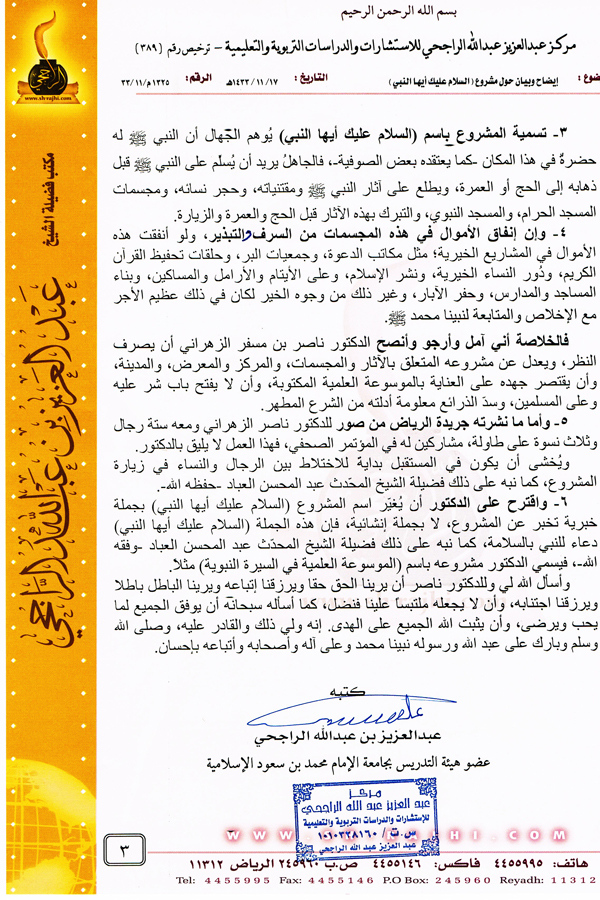 بسم الله الرحمن الرحيم
مركز عبدالعزيز عبدالله الراجحي للاستشارات والدراسات التربوية والتعليمية - ترخيص رقم (٣٨٩)
ضوع: إيضاح وبيان حول مشروع (السلام عليك أيها النبي) التاريخ: ١٤٣٣/١١/١٧هـ الرقم: ٣٣/١١/م١٣٢٥
www.shrajhi.com
مكتب فضيلة الشيخ
عبدالعزيز بن عبدالله الراجحي
٣- تسمية المشروع باسم (السلام عليك أيها النبي) يُوهم الجُهال أن النبي ﷺ له
حضرةٌ في هذا المكان -كما يعتقده بعض الصوفية-، فالجاهلُ يريد أن يُسلّم على النبي ﷺ قبل
ذهابه إلى الحج أو العمرة، ويطلع على آثار النبي ﷺ ومقتنياته، وحجر نسائه، ومجسمات
المسجد الحرام، والمسجد النبوي، والتبرك بهذه الآثار قبل الحج والعمرة والزيارة.
٤- وإن إنفاق الأموال في هذه المجسمات من السرف والتبذير، ولو أنفقت هذه
الأموال في المشاريع الخيرية؛ مثل مكاتب الدعوة، وجمعيات البر، وحلقات تحفيظ القرآن
الكريم، ودُور النساء الخيرية، ونشر الإسلام، وعلى الأيتام والأرامل والمساكين، وبناء
المساجد والمدارس، وحفر الآبار، وغير ذلك من وجوه الخير لكان في ذلك عظيم الأجر
مع الإخلاص والمتابعة لنبينا محمد ﷺ.
فالخلاصة أني آمل وأرجو وأنصح الدكتور ناصر بن مسفر الزهراني أن يصرف
النظر، ويعدل عن مشروعه المتعلق بالآثار والمجسمات، والمركز والمعرض، والمدينة،
وأن يقتصر جهده على العناية بالموسوعة العلمية المكتوبة، وأن لا يفتح باب شر عليه
وعلى المسلمين، وسدّ الذرائع معلومة أدلته من الشرع المطهر.
٥- وأما ما نشرته جريدة الرياض من صور للدكتور ناصر الزهراني ومعه ستة رجال
وثلاث نسوة على طاولة، مشاركين له في المؤتمر الصحفي، فهذا العمل لا يليق بالدكتور.
ويُخشى أن يكون في المستقبل بداية للاختلاط بين الرجال والنساء في زيارة
المشروع، كما نبه على ذلك فضيلة الشيخ المحدّث عبد المحسن العباد -حفظه الله-.
٦- واقترح على الدكتور أن يُغيّر اسم المشروع (السلام عليك أيها النبي) بجملة
خبرية تخبر عن المشروع، لا بجملة إنشائية، فإن هذه الجملة (السلام عليك أيها النبي)
دعاء للنبي بالسلامة، كما نبه على ذلك فضيلة الشيخ المحدّث عبد المحسن العباد -وفقه
الله-، فيسمي الدكتور مشروعه باسم (الموسوعة العلمية في السيرة النبوية) مثلاً.
وأسأل الله لي وللدكتور ناصر أن يرينا الحق حقا ويرزقنا إتباعه ويرينا الباطل باطلا
ويرزقنا اجتنابه، وأن لا يجعله ملتبساً علينا فنضل، كما أسأله سبحانه أن يوفق الجميع لما
يحب ويرضى، وأن يثبت الله الجميع على الهدى. إنه ولي ذلك والقادر عليه، وصلى الله
وسلم وبارك على عبد الله ورسوله نبينا محمد وعلى آله وأصحابه وأتباعه بإحسان.
كتبه
عبدالعزيز بن عبدالله الراجحي
عضو هيئة التدريس بجامعة الإمام محمد بن سعود الإسلامية
مركز
عبد العزيز عبد الله الراجحي
للإستشارات والدراسات التربوية والتعليمية
س.ت / ١٠١٠٣٢٨١٦٠
عبد العزيز عبد الله الراجحي
٣
هاتف: ٤٤٥٥٩٩٥ فاكس: ٤٤٥٥١٤٦ ص.ب ٢٤٥٩٦٠ الرياض ١١٣١٢
Tel: 4455995 Fax: 4455146 P.O Box: 245960 Reyadh: 11312